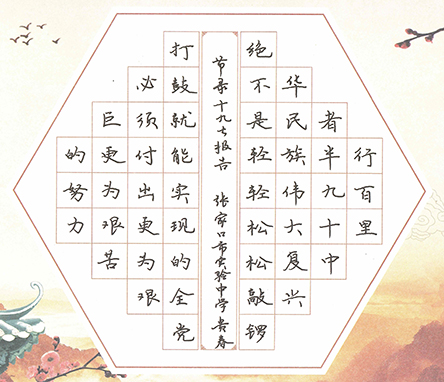 行百里
者半九十中
华民族伟大复兴
绝不是轻轻松松敲锣
打鼓就能实现的全党
必须付出更为艰
巨更为艰苦
的努力
节录十九大报告 张家口市实验中学 春